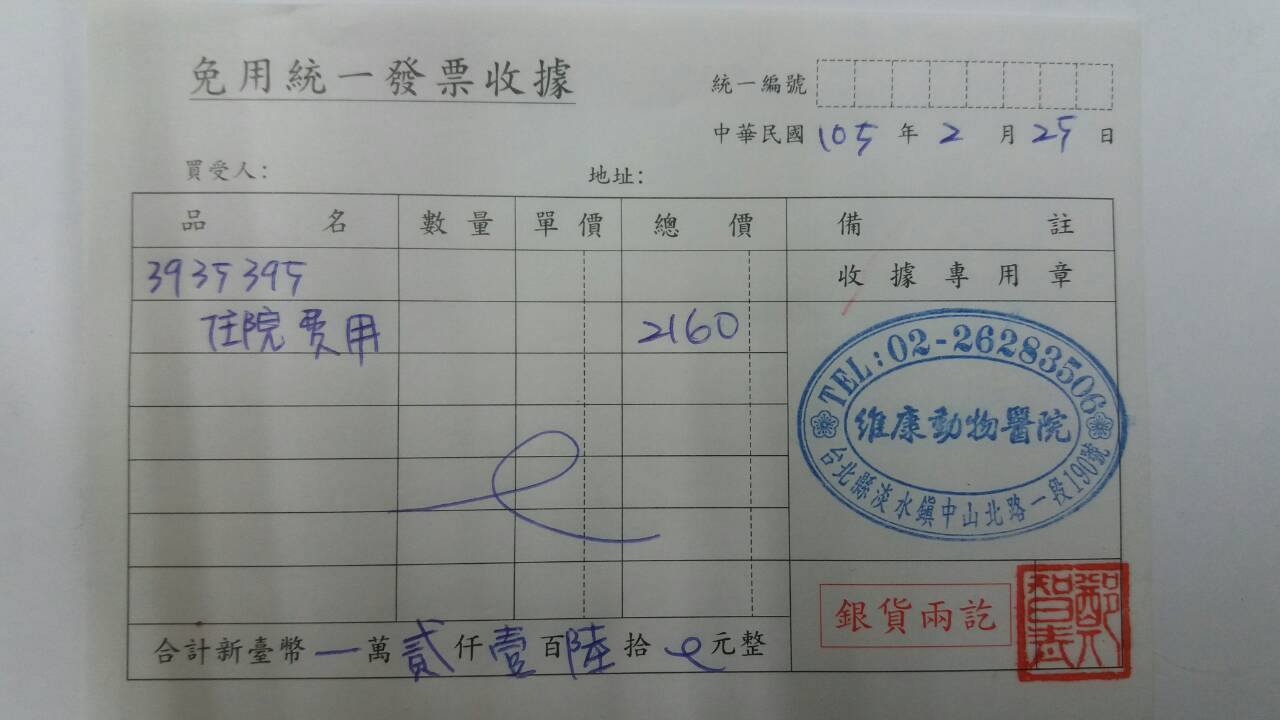 免用統一發票收據
統一編號
中華民國 105 年 2 月 25 日
買受人： 地址：
品名 數量 單價 總價 備註
3935395 收據專用章
住院費用 2160
TEL:02-26283506
維康動物醫院
台北縣淡水鎮中山北路一段190號
銀貨兩訖
合計新臺幣 一 萬 貳 仟 壹 百 陸 拾 元整